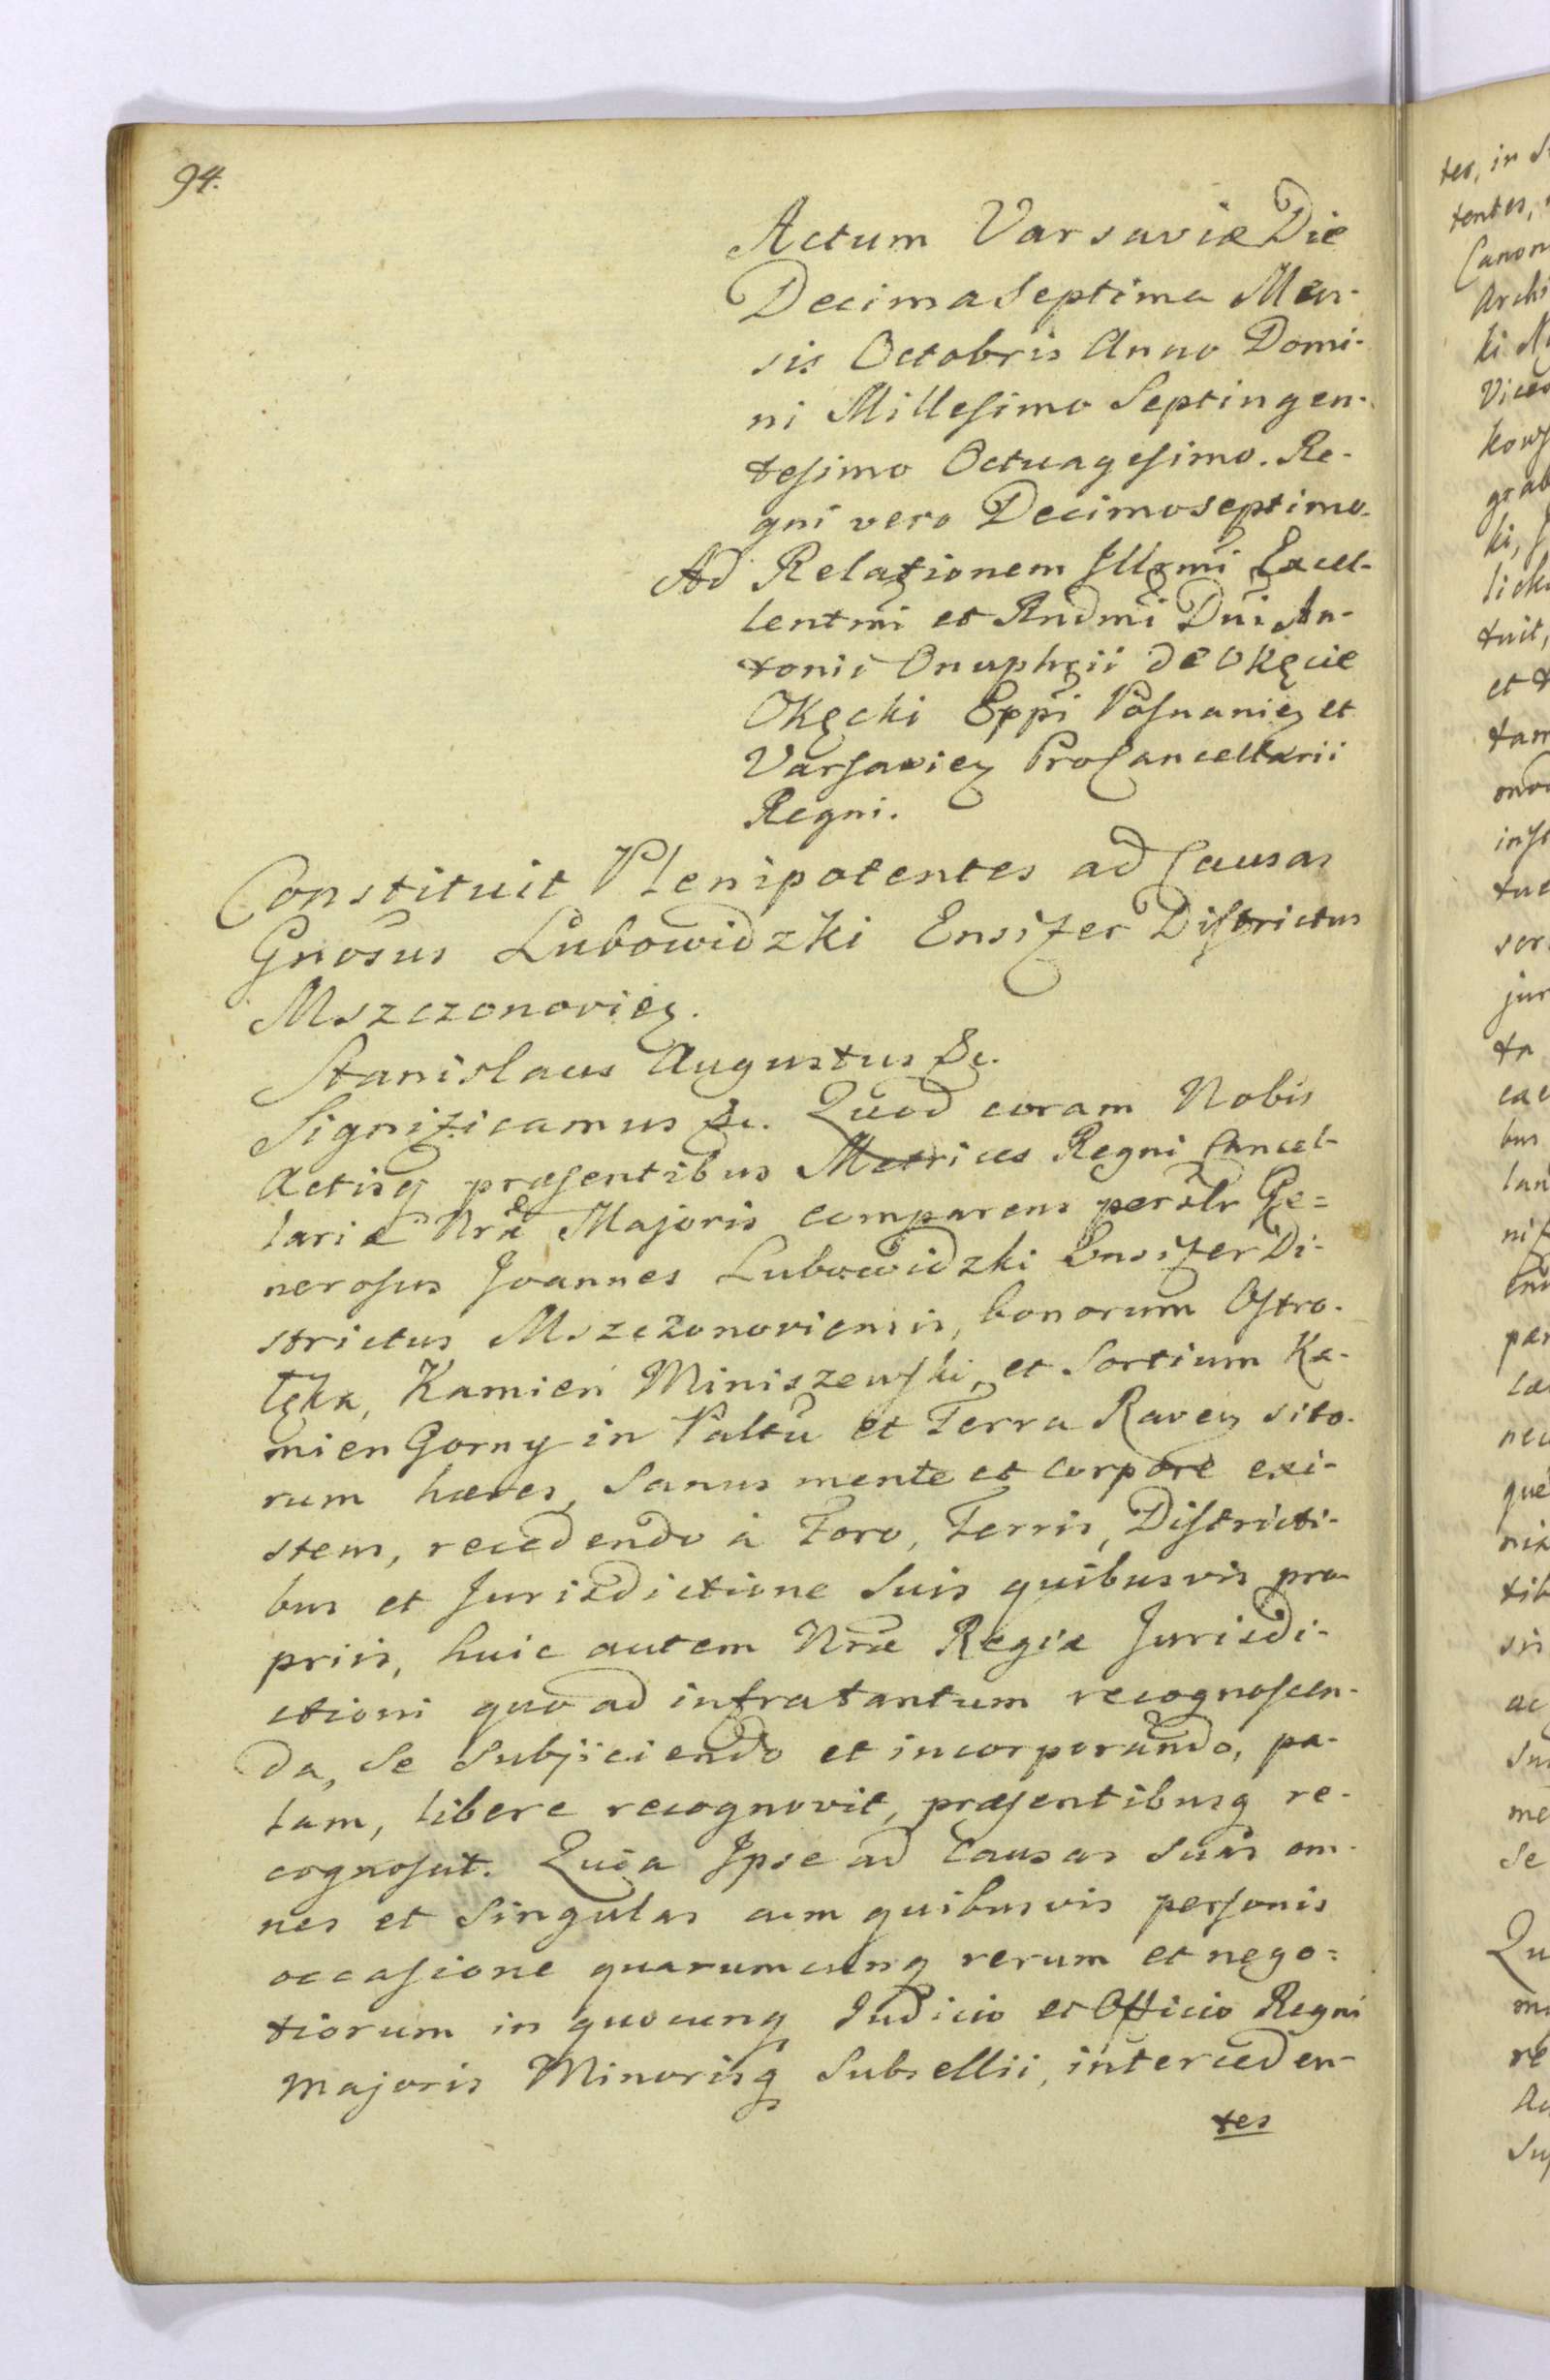 94.
Actum Varsaviæ Die
Decima Septima Men-
sis Octobris Anno Domi-
ni Millesimo Septingen-
tesimo Octuagesimo. Re-
gni vero Decimoseptimo.
Ad Relationem Illrmi Excel-
lentmi et Rndmi Dni An-
tonii Onuphrii de Okęcie
Okęcki Eppi Posnanien et
Varsavien ProCancellarii
Regni.
Constituit Plenipotentes ad Causas
Gnosus Lubowidzki Ensifer Districtus
Mszczonovien.
Stanislaus Augustus &c.
Significamus &c. Quod coram Nobis
Actisq præsentibus Metrices Regni Cancel-
lariæ Nræ Majoris comparens personlr Ge=
nerosus Joannes Lubowidzki Ensifer Di-
strictus Mszczonoviensis, bonorum Ostro-
łęka, Kamień Miniszewski, et Sortium Ka-
mien Gorny in Paltu et Terra Raven sito-
rum hæres, Sanus mente et corpore exi-
stens, recedendo à Foro, Terris, Districti-
bus et Jurisdictione Suis quibusvis pro-
priis, huic autem Nræ Regiæ Jurisdi-
ctioni quo ad infra tantum recognoscen-
da, Se Subjiciendo et incorporando, pa-
lam, libere recognovit, præsentibusq re-
cognoscit. Quia Ipse ad Causas Suas om-
nes et Singulas cum quibusvis personis
occasione quarumcunq rerum et nego=
tiorum in quocunq Judicio et Officio Regni
Majoris Minorisq Subsellii, interceden-
tes